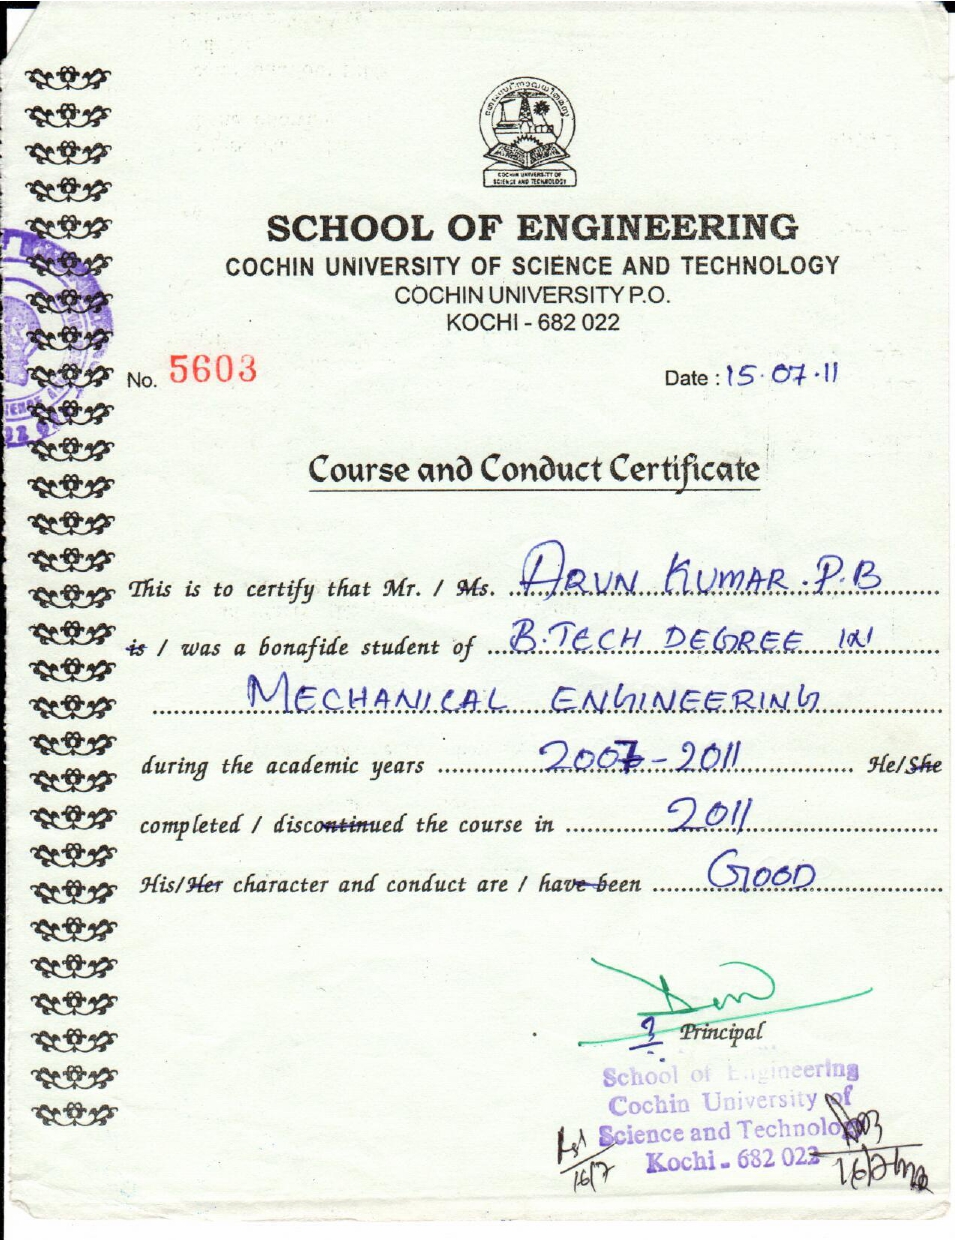 COCHIN UNIVERSITY OF
SCIENCE AND TECHNOLOGY
SCHOOL OF ENGINEERING
COCHIN UNIVERSITY OF SCIENCE AND TECHNOLOGY
COCHIN UNIVERSITY P.O.
KOCHI - 682 022
No. 5603 Date : 15.07.11
Course and Conduct Certificate
This is to certify that Mr. / Ms. ARUN KUMAR.P.B
is / was a bonafide student of B.TECH DEGREE IN
MECHANICAL ENGINEERING
during the academic years 2007-2011 He/She
completed / discontinued the course in 2011
His/Her character and conduct are / have been GOOD
Principal
School of Engineering
Cochin University of
Science and Technology
Kochi - 682 022
16/7